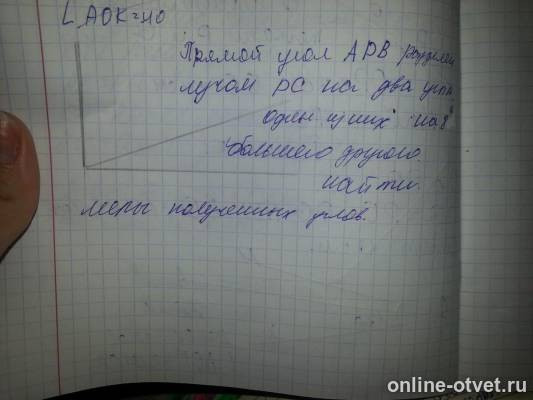 ∠AOK=110
Прямой угол APB разделен
лучом PC на два угла
один из них на 8°
большего другого
найти
меры полученных углов.
online-otvet.ru